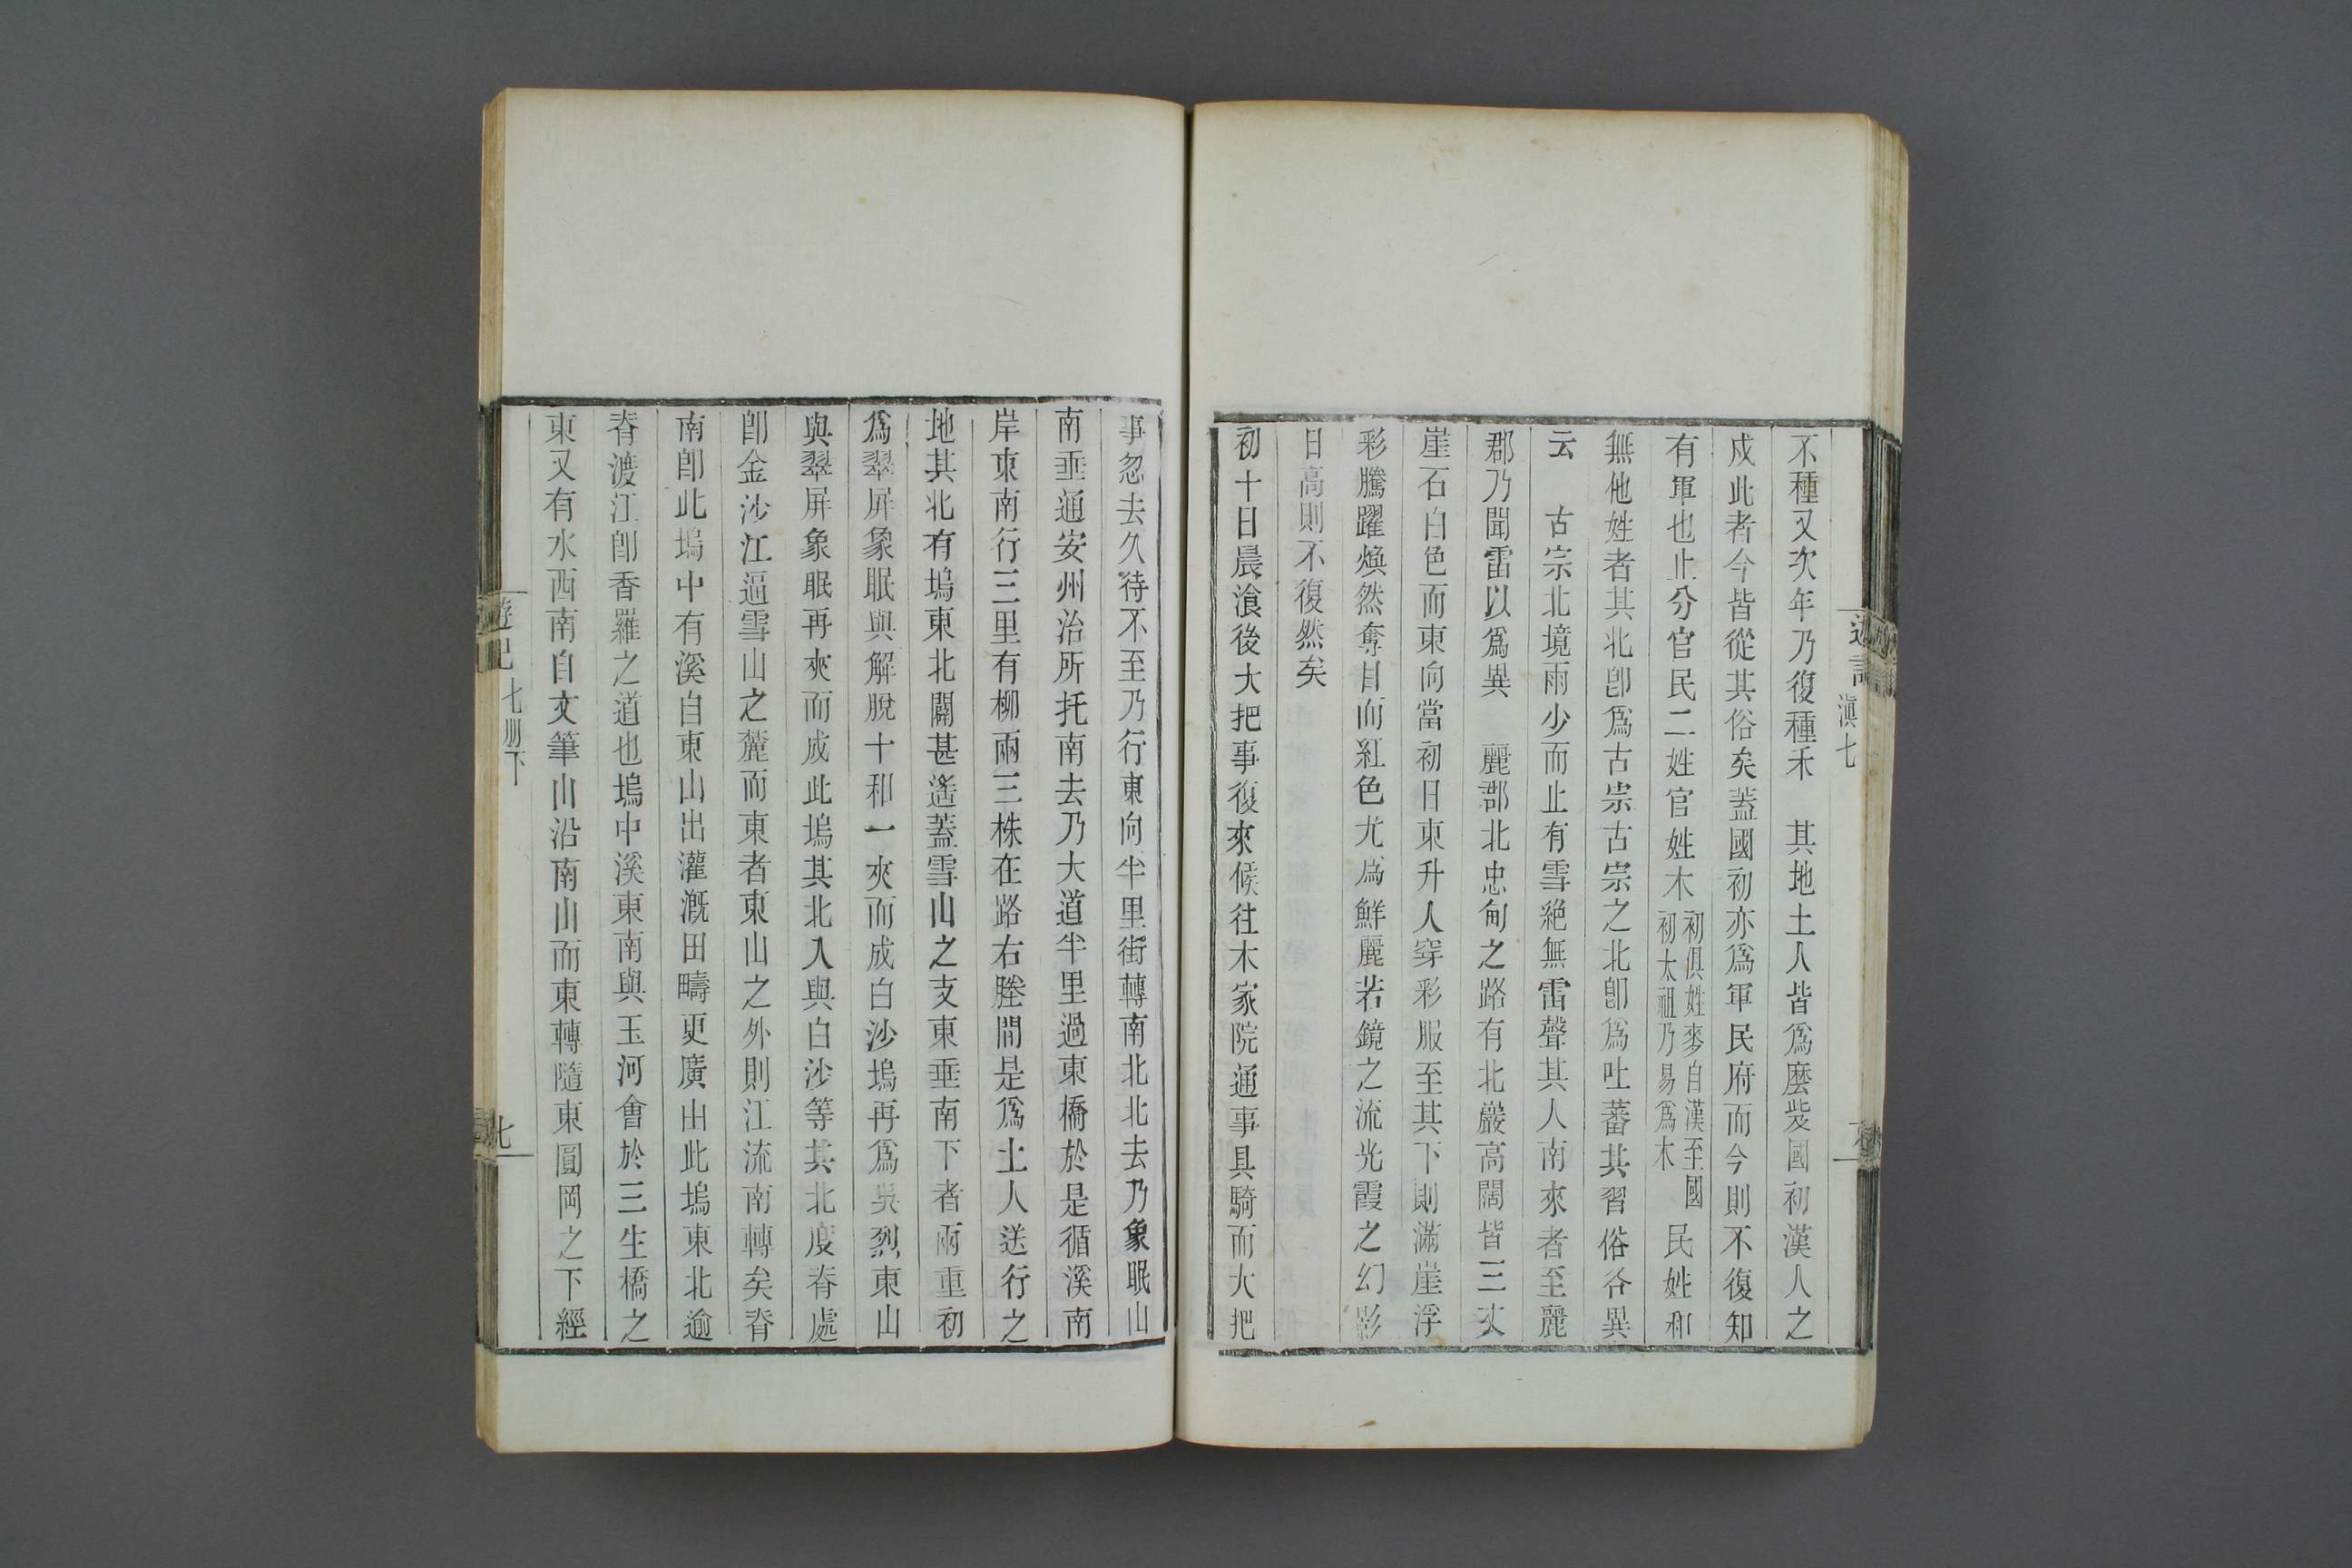 滇七
不種又次年乃復種禾　其地土人皆爲麼些國初漢人之
戍此者今皆從其俗矣蓋國初亦爲軍民府而今則不復知
有軍也止分官民二姓官姓木初俱姓麥自漢至國初太祖乃易爲木民姓和
無他姓者其北卽爲古宗古宗之北卽爲吐蕃其習俗各異
云　古宗北境雨少而止有雪絕無雷聲其人南來者至麗
郡乃聞雷以爲異　麗郡北忠甸之路有北巖高闊皆三丈
崖石白色而東向當初日東升人穿彩服至其下則滿崖浮
彩騰躍煥然奪目而紅色尤爲鮮麗若鏡之流光霞之幻影
日高則不復然矣
初十日晨飡後大把事復來候往木家院通事具騎而大把
事忽去久待不至乃行東向半里街轉南北北去乃象眠山
南垂通安州治所托南去乃大道半里過東橋於是循溪南
岸東南行三里有柳兩三株在路右塍間是爲土人送行之
地其北有塢東北闢甚遙蓋雪山之支東垂南下者兩重初
爲翠屏象眠與解脫十和一夾而成白沙塢再爲吳烈東山
與翠屏象眠再夾而成此塢其北入與白沙等其北度脊處
卽金沙江逼雪山之麓而東者東山之外則江流南轉矣脊
南卽此塢中有溪自東山出灌漑田疇更廣由此塢東北逾
脊渡江卽香羅之道也塢中溪東南與玉河會於三生橋之
東又有水西南自文筆山沿南山而東轉隨東圓岡之下經
遊記 七册下